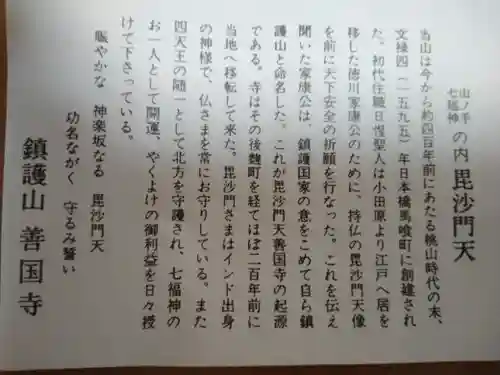 山ノ手七福神の内 毘沙門天
当山は今から約四百年前にあたる桃山時代の末、
文禄四(一五九五)年日本橋馬喰町に創建され
た。初代住職日惺聖人は小田原より江戸へ居を
移した徳川家康公のために、持仏の毘沙門天像
を前に天下安全の祈願を行なった。これを伝え
聞いた家康公は、鎮護国家の意をこめて自ら鎮
護山と命名した。これが毘沙門天善国寺の起源
である。寺はその後麹町を経てほぼ二百年前に
当地へ移転して来た。毘沙門さまはインド出身
の神様で、仏さまを常にお守りしている。また
四天王の随一として北方を守護され、七福神の
お一人として開運、やくよけの御利益を日々授
けて下さっている。
賑やかな 神楽坂なる 毘沙門天
功名ながく 守るみ誓い
鎮護山 善国寺